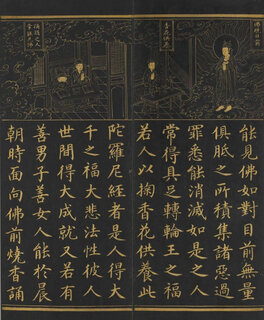 能見佛如對目前無量
俱胝之所積集諸惡過
罪悉能消滅如是之人
常得具足轉輪王之福
若人以掬香花供養此
陀羅尼經者是人得大
千之福大悲法性彼人
世間得大成就又若有
善男子善女人能於晨
朝時面向佛前燒香誦